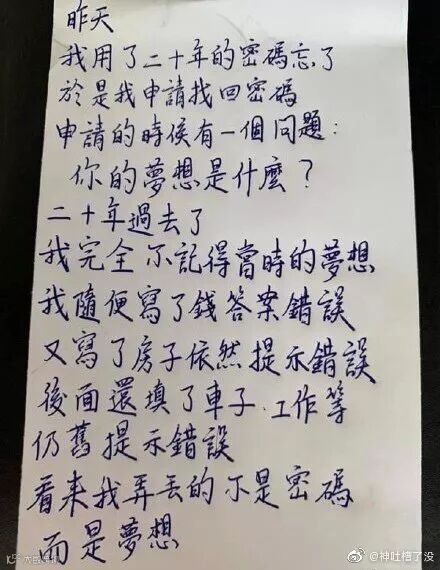 昨天
我用了二十年的密碼忘了
於是我申請找回密碼
申請的時侯有一個問題：
你的夢想是什麼？
二十年過去了
我完全不記得當時的夢想
我隨便寫了錢答案錯誤
又寫了房子依然提示錯誤
後面還填了車子.工作等
仍舊提示錯誤
看来我弄丟的不是密碼
而是夢想
@神吐槽了没